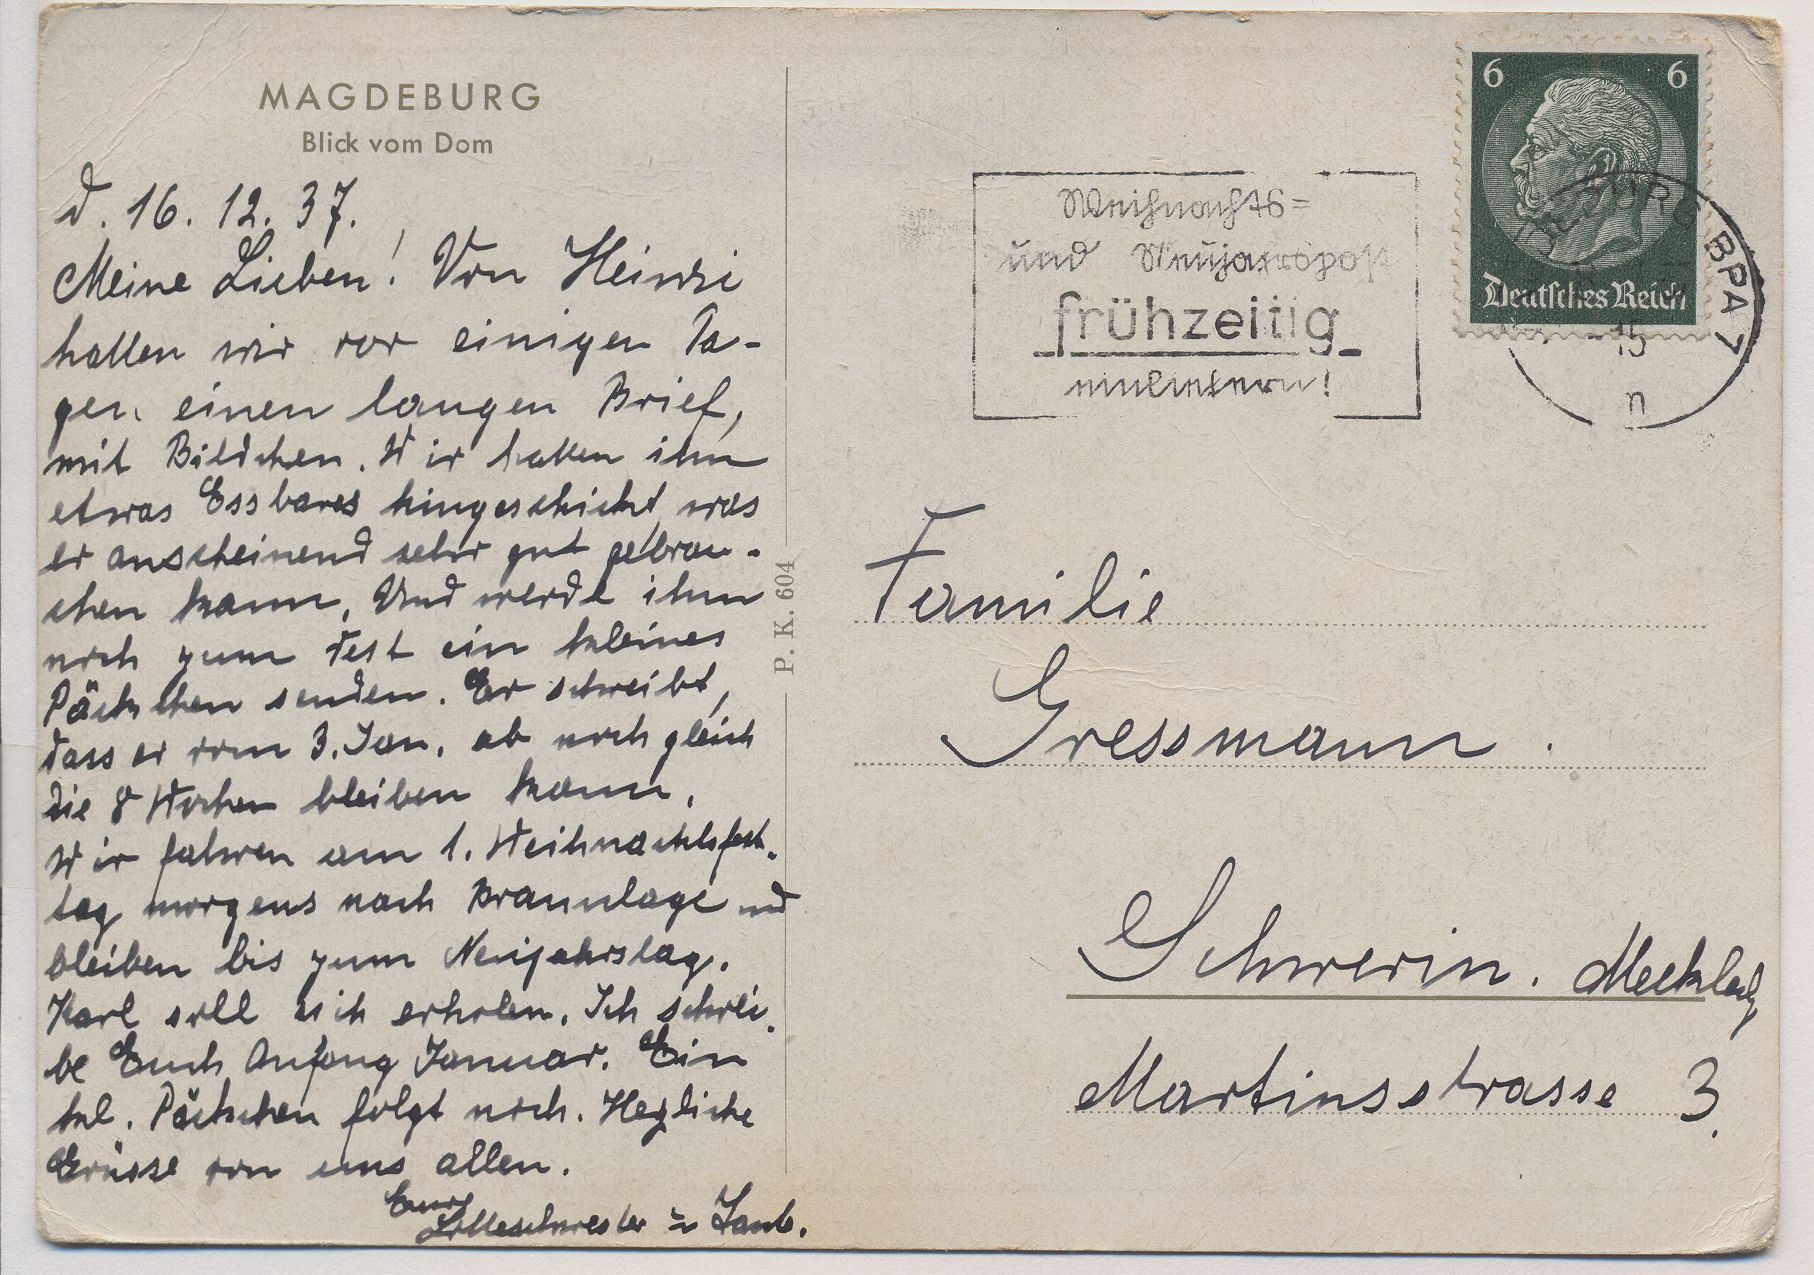 MAGDEBURG
Blick vom Dom
d. 16. 12. 37.
Meine Lieben! Von Heinzi
hatten wir vor einigen Ta-
gen einen langen Brief,
mit Bildchen. Wir hatten ihm
etwas Essbares hingeschickt, was
er anscheinend sehr gut gebrau-
chen kann, Und werde ihm
noch zum Fest ein kleines
Päckchen senden. Er schreibt,
dass er vom 3. Jan. ab noch gleich
die 8 Wochen bleiben kann.
Wir fahren am 1. Weihnachtsfest-
tag morgens nach Braunlage und
bleiben bis zum Neujahrstag.
Karl soll sich erholen. Ich schrei-
be Euch Anfang Januar. Ein
kl. Päckchen folgt noch. Herzliche
Grüsse von uns allen.
Eure
Lotteschwester
P. K. 604
6 6
Deutsches Reich
Weihnachts-
und Neujahrspost
frühzeitig
einliefern!
MAGDEBURG BPA 7
15
n
Familie
Gressmann.
Schwerin. Mecklbg
Martinsstrasse 3.